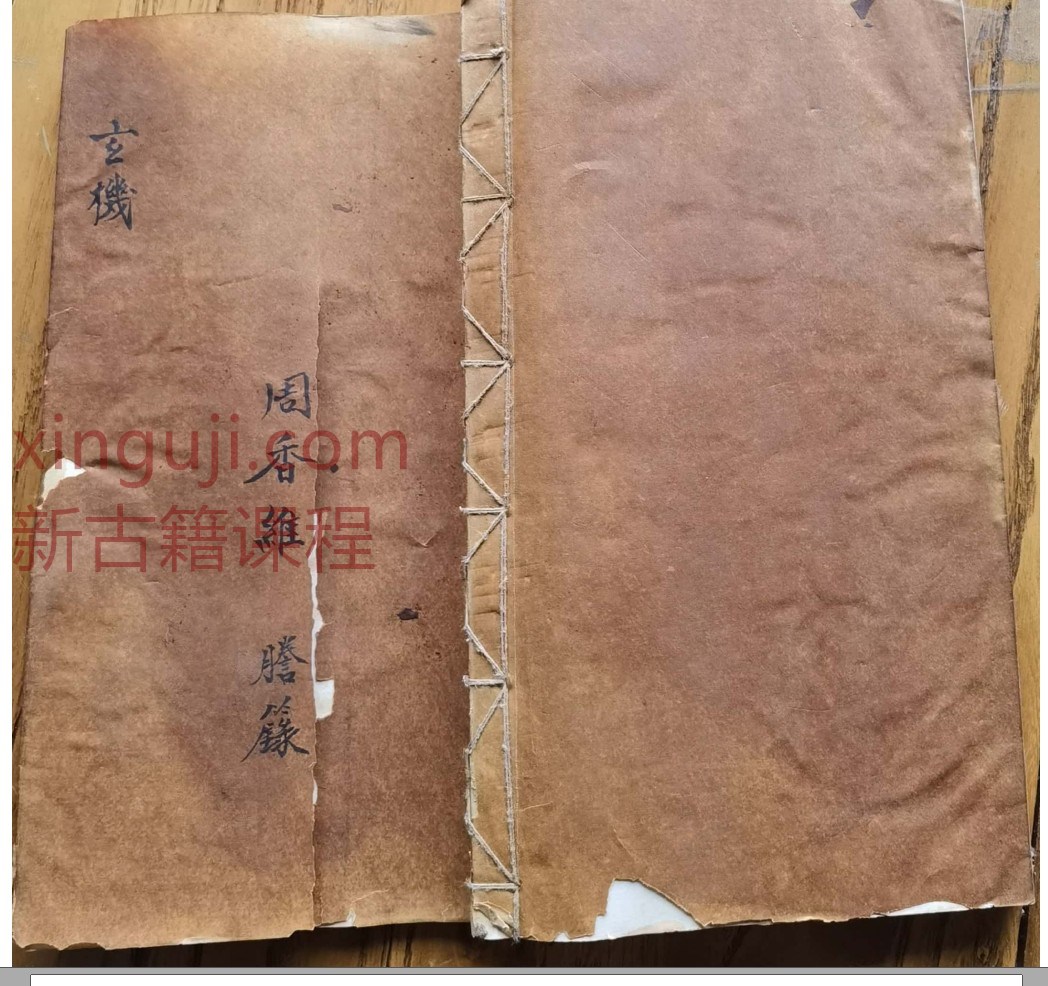 玄機
周香維 謄籙
xinguji.com
新古籍课程